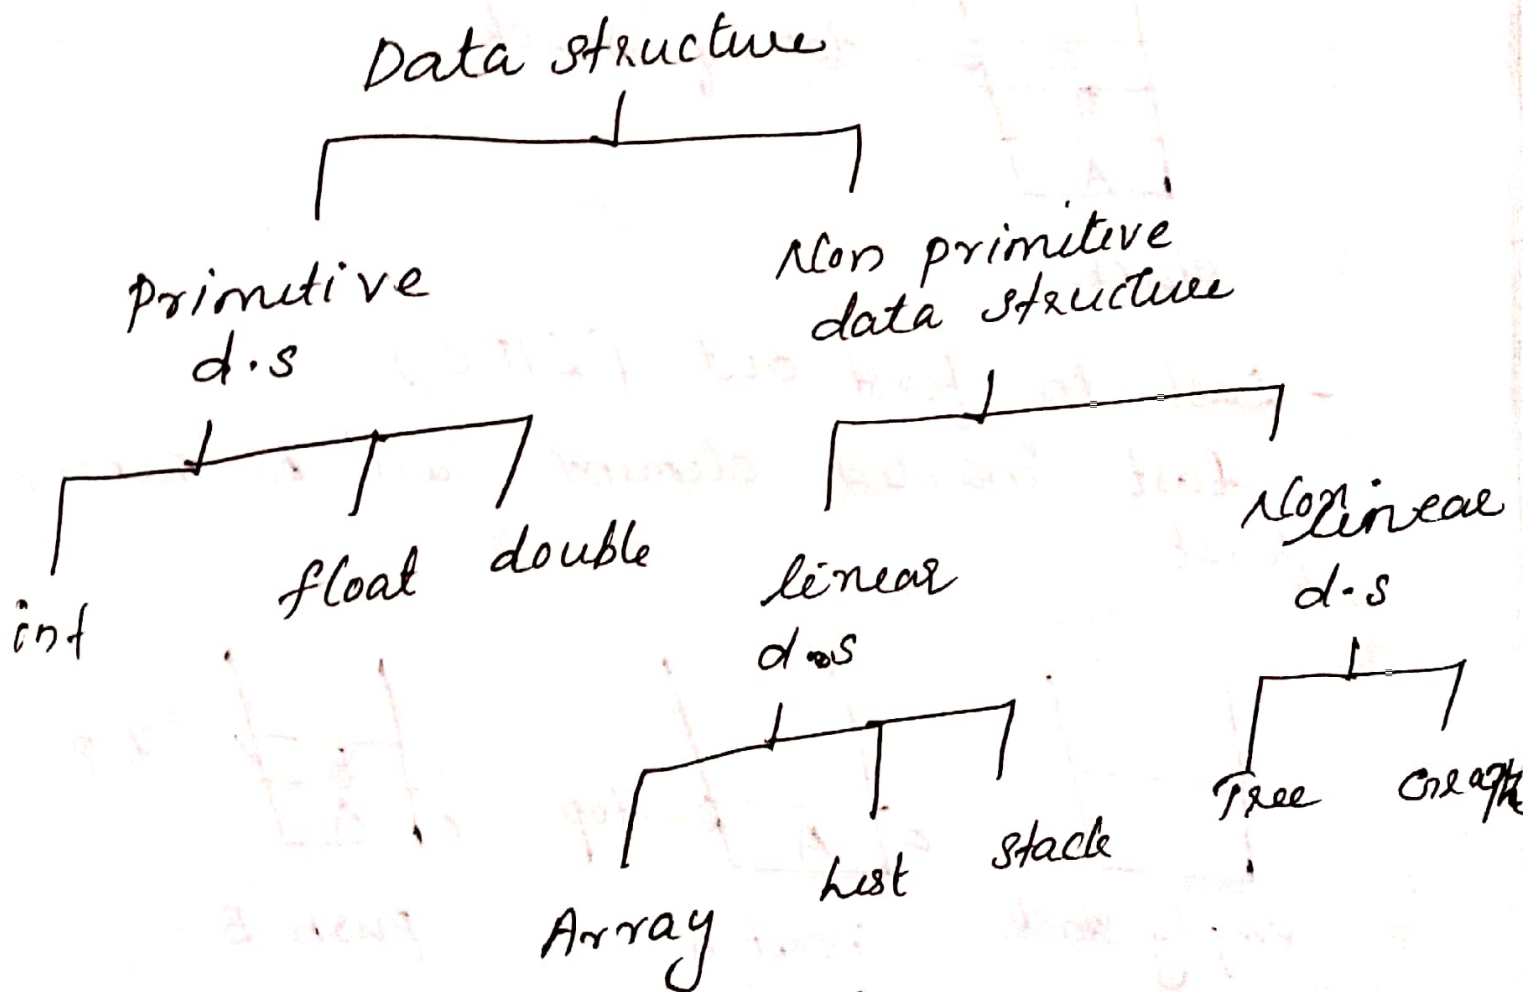 Data structure
Primitive
d.s
Non primitive
data structure
int
float
double
linear
d.s
Non linear
d.s
Array
List
stack
Tree
Graph